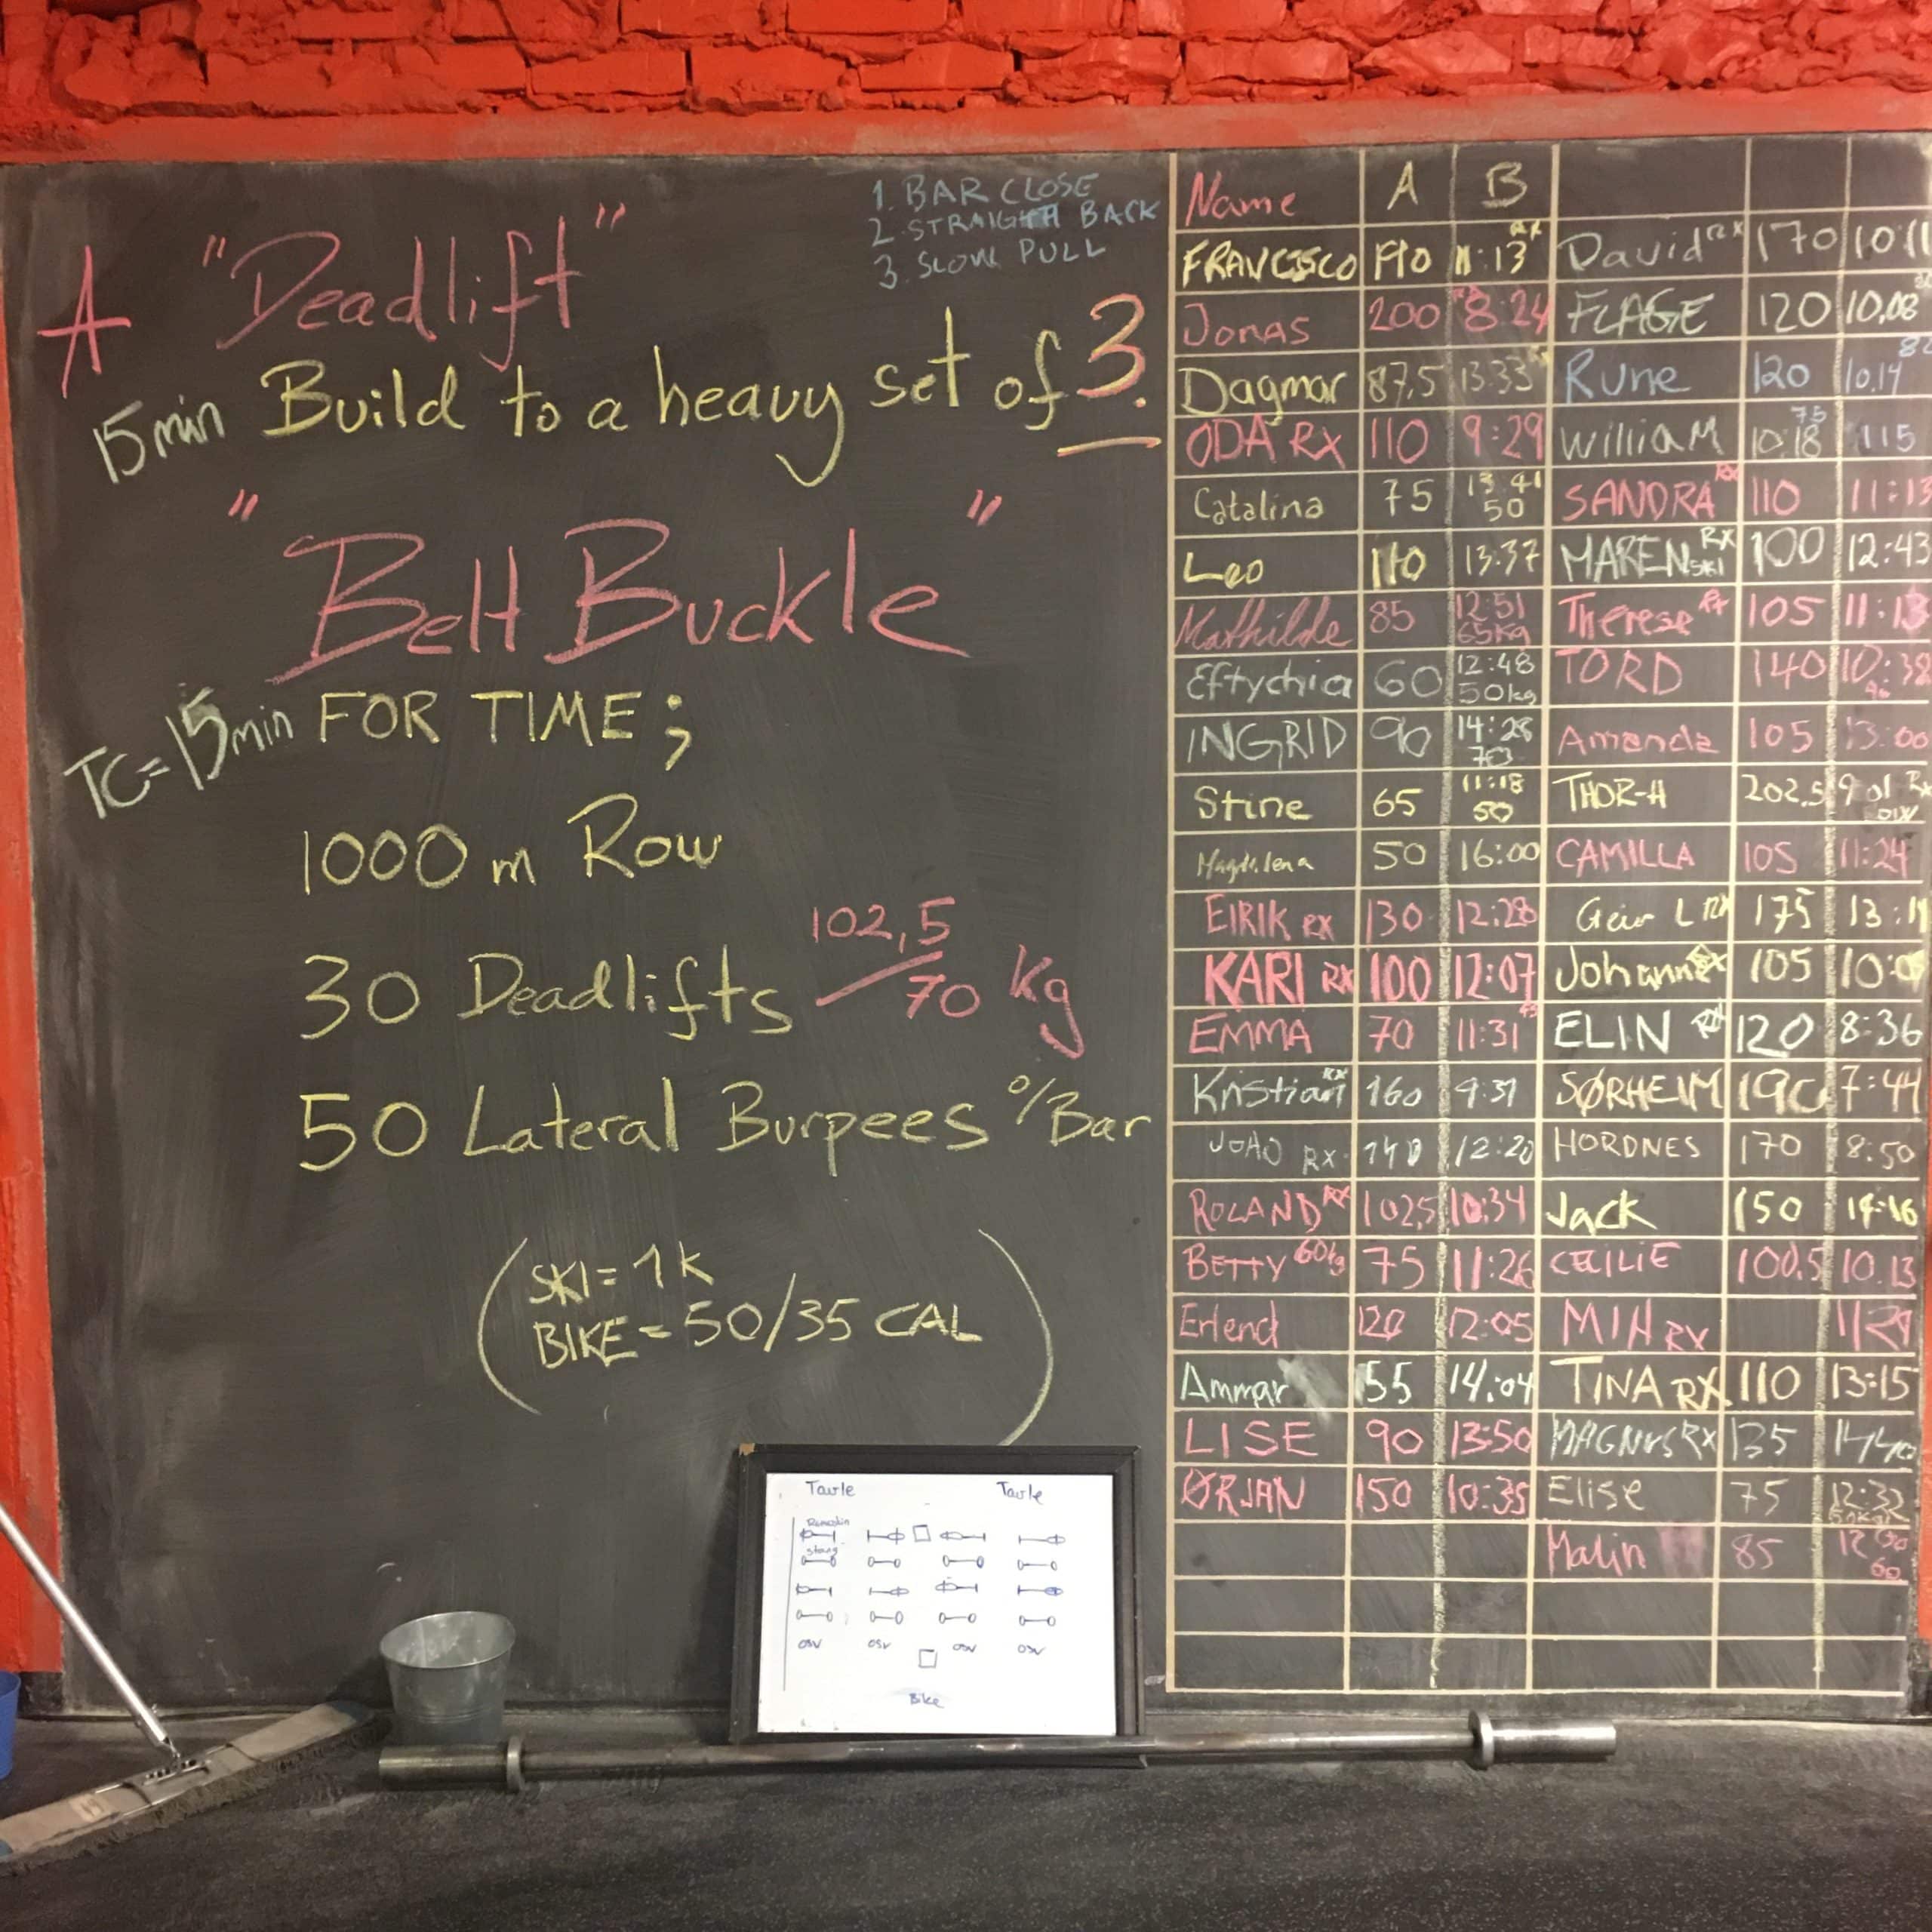 1. BAR CLOSE
2. STRAIGHT BACK
3. SLOW PULL
A "Deadlift"
15min Build to a heavy set of 3.
"Belt Buckle"
TC=15min FOR TIME;
1000 m Row
30 Deadlifts 102,5/70 Kg
50 Lateral Burpees %Bar
(SKI= 1K
BIKE = 50/35 CAL)
Name A B
FRANCESCO 190 11:13 RX
Jonas 200 8:24
Dagmar 87,5 13:33
ODA RX 110 9:29
Catalina 75 13 41 50
Leo 110 13:37
Mathilde 85 12:51 65kg
Eftychia 60 12:48 50kg
INGRID 90 14:28 70
Stine 65 11:18 50
Magdalena 50 16:00
EIRIK RX 130 12:28
KARI RX 100 12:07
EMMA 70 11:31
Kristian RX 160 9:31
JOAO RX 140 12:20
ROLAND RX 102,5 10:34
BETTY 60kg 75 11:26
Erlend 120 12:05
Ammar 55 14:04
LISE 90 13:50
ØRJAN 150 10:35
David RX 170 10:11
FLAGE 120 10,08
Rune 120 10.14 82
William 10:18 75 115
SANDRA RX 110 11:13
MAREN RX SKI 100 12:43
Therese RX 105 11:13
TORD 140 10:38
Amanda 105 13:00
THOR-H 202,5 9 01 Rx
CAMILLA 105 11:24
Geir L RX 175 13:1
Johann 105 10:0
ELIN RX 120 8:36
SØRHEIM 190 7:44
HORDNES 170 8:50
Jack 150 14:16
CECILIE 100,5 10.13
MIH RX 1129
TINA RX 110 13:15
MAGNUS RX 135 1440
Elise 75 12:32
Malin 85 12 60
Tavle Tavle
stang
osv osv osv osv
Bike